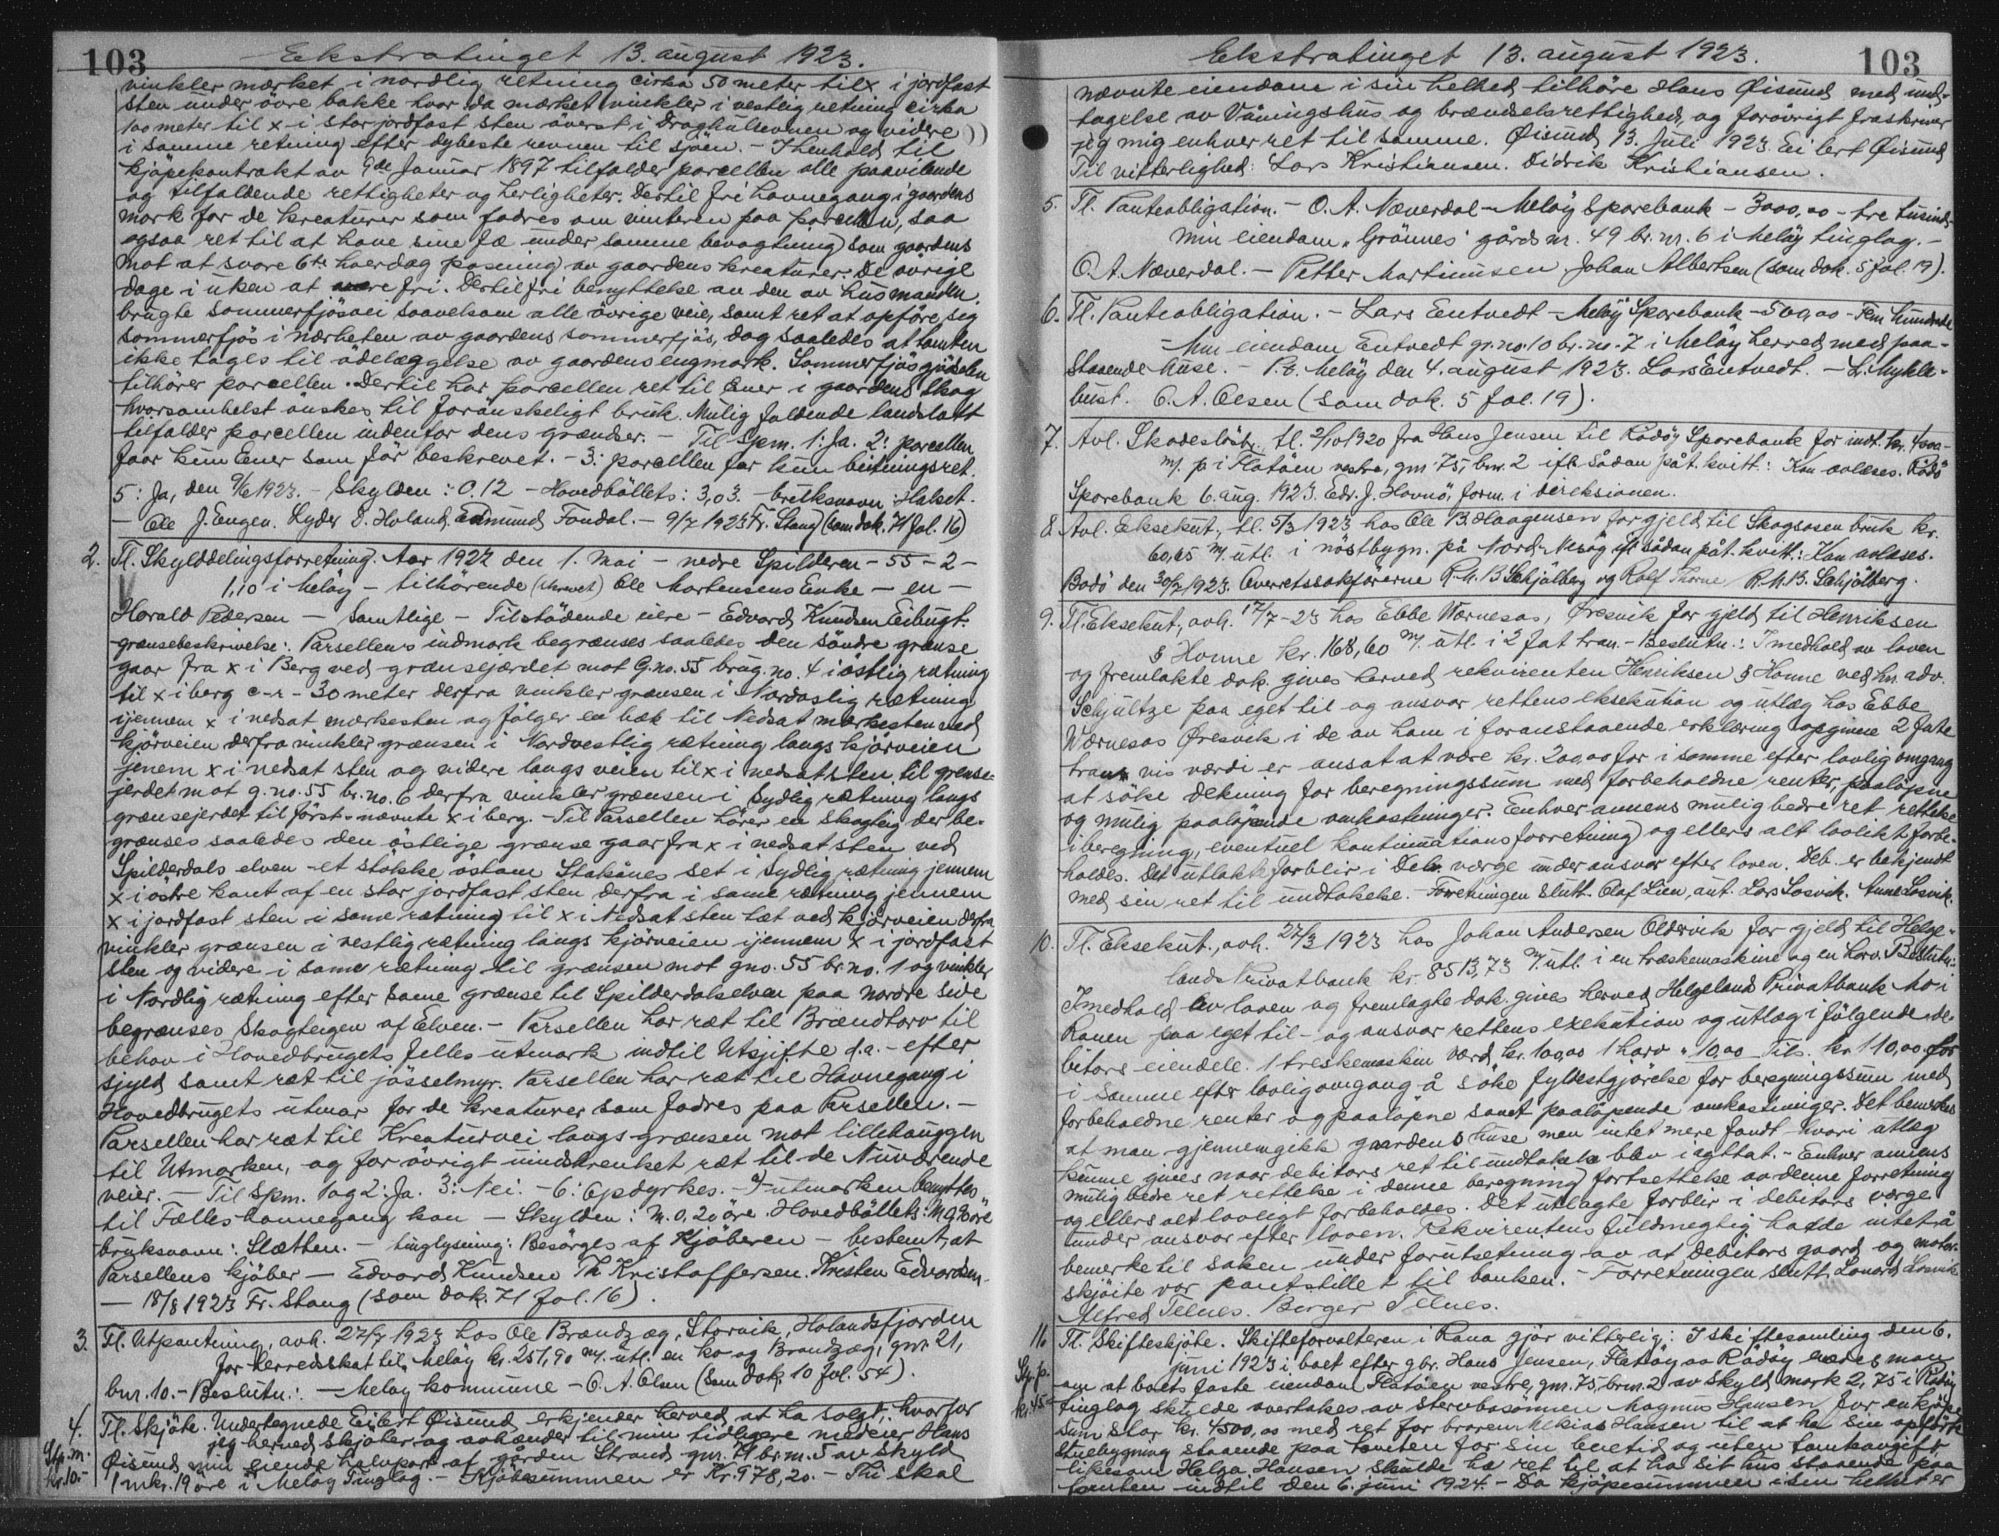 103 Ekstratinget 13. august 1923.
vinkler mærket i nordlig retning cirka 50 meter til x i jordfast
sten under övre bakke hvor da mærket vinkler i vestlig retning cirka
100 meter til x i stor jordfast sten överst i og videre
i samme retning efter dybeste revnen til sjöen. - I henhold til
kjöpekontrakt av 9de Januar 1897 tilfalder parcellen alle paavilende
og tilfaldende rettigheter og herligheter. Dertil fri havnegang i gaardens
mark for de kreaturer som fodres om vinteren paa parcellen, saa
ogsaa ret til at have sine fæ under samme bevogtning som gaardens
mot at svare 6te hverdag pasning av gaardens kreaturer. De övrige
dage i uken at være fri. Dertil fri benyttelse av den av husmanden
brugte sommerfjösvei saavelsom alle övrige veie, samt ret at opföre sig
sommerfjös i nærheten av gaardens sommerfjös, dog saaledes at tomten
ikke tages til ödelæggelse av gaardens engmark. Sommerfjösgjödselen
tilhörer parcellen. Dertil har parcellen ret til Ener i gaardens skog
hvorsomhelst önskes til forönskeligt bruk. Mulig faldende landslott
tilfalder parcellen indenfor dens grændser. - Til Spm. 1: Ja. 2: parcellen
faar kun Ener som för beskrevet. - 3: parcellen har kun beitningsret.
5: Ja, den 9/6 1923. - Skylden: 0.12 - Hovedböllets: 3,03 - bruksnavn: Halset.
- Ole J. Engen. Lyder D. Holand, Edmund Fondal. - 9/7 1923 Fr. Stang (som dok. 71 fol. 16)
2. Tl. Skylddelingsforretning. Aar 1922 den 1. Mai - nedre Spilderen - 55 - 2 -
1,10 i Melöy - tilhörende Ole Mortensens Enke - en -
Harald Pedersen - Samtlige - Tilstödende eiere - Edvard Knudsen Eibugt.
grænsebeskrivelse: Parsellens indmark begrænses saaledes den söndre grænse
gaar fra x i Berg ved grænsejærdet mot G.no. 55 brug. no. 4 i östlig rætning
til x i berg c-a - 30 meter derfra vinkler grænsen i Nordöstlig rætning
ijennem x i nedsat merkesten og fölger en bæk til Nedsat merkesten ved
kjörveien derfra vinkler grænsen i Nordvestlig rætning langs kjörveien
jenem x i nedsat sten og videre langs veien til x i nedsat sten til grense-
jerdet mot g. no. 55 br. no. 6 derfra vinkler grænsen i Sydlig rætning langs
grænsejerdet til först-nævnte x i berg. - Til Parsellen hörer en Skogteig der be-
grænses saaledes den östlige grænse gaar fra x i nedsat sten ved
Spilderdals elven et stokke östom Stakånes set i Sydlig rætning jennem
x i östre kant af en stor jordfast sten derfra i same rætning jennem
x i jordfast sten i same rætning til x i Nedsat sten tæt ved kjörveien derfra
vinkler grænsen i vestlig rætning langs kjörveien ijennem x i jordfast
sten og videre i same rætning til grænsen mot gno. 55 br. no. 1 og vinkler
i Nordlig rætning efter same grænse til Spilderdalselven paa nordre side
begrænses Skogteigen af Elven. - Parsellen har ræt til Brændtorv til
behov i Hovedbrugets felles utmark indtil Utsjifte d.a. - efter
sjyld samt ræt til jösselmyr. Parsellen har ræt til Havnegang i
Hovedbrugets utmar for de kreaturer som fodres paa Parsellen. -
Parsellen har ræt til Kreaturvei langs grænsen mot lillehauggen
til Utmarken, og for övrigt uindskrenket ræt til de Nuværende
veier. - Til Spm. 1 og 2: Ja. 3: Nei. - 6: Opdyrkes. - 9 - utmarken benyttes
til Fælles havnegang kan - Skylden: M. 0,20 öre. Hovedböllets: M. 0,90 öre
bruksnavn: Slætten. - tinglysning: Besörges af Kjöberen - bestemt, at
Parsellens kjöber - Edvard Knudsen Th Kristoffersen. Kristen Edvardsen.
- 18/8 1923 Fr. Stang (som dok. 71 fol. 16).
3. Tl. Utpantning, avh. 27/7 1923 hos Ole Brandzæg, Storvik, Holandsfjorden
for herredskat til Melöy kr. 251,90 m/ utl. en ko og Brandzæg, gnr. 21,
bnr. 10. - Beslutn.: - Melöy kommune - O. A. Olsen (som dok. 10 fol. 54).
4. Tl. Skjöte. Undertegnede Eilert Øisund erkjender herved at ha solgt, hvorfor
jeg herved skjöter og avhænder til min tidligere medeier Hans
Stp. m. Øisund min eiende halvpart af gården Strand gnr. 71 br. nr. 5 av skyld
kr. 10.- 1 mkr. 19 öre i Melöy Tinglag. - Kjöbesummen er Kr. 978,20. - Thi skal
Ekstratinget 13. august 1923. 103
nævnte eiendom i sin helhed tilhöre Hans Øisund med und-
tagelse av Våningshus og brændselsrettighed, og forövrigt fraskriver
jeg mig enhver ret til samme. Øisund 13. Juli 1923. Eilert Øisund
Til vitterlighed: Lars Kristiansen. Didrik Kristiansen.
5. Tl. Panteobligation. - O. A. Næverdal - Melöy Sparebank - 3000,00 - tre tusind -
min eiendom "Grönnes" gårds nr. 49 br. nr. 6 i Melöy tinglag. -
O. A. Næverdal. - Petter Martinusen Johan Albertsen (som dok. 5 fol. 19).
6. Tl. Panteobligation. - Lars Eentvedt - Melöy Sparebank - 500,00 - Fem hundrede
- Min eiendom Entvedt gr. no. 10 br. no. 7 i Melöy herred med paa-
staaende huse. - P.t. Melöy den 4. august 1923. Lars Entvedt. - L. Mykle-
bust. O. A. Olsen (som dok. 5 fol. 19).
7. Avl. Skadeslösbr. tl. 2/10 1920 fra Hans Jensen til Rödöy Sparebank for indt. kr. 4000-
m/ p. i Flatöen vestre, gnr. 75, bnr. 2 ifl. sådan påt. kvitt.: Kan avlæses. Rödö
Sparebank 6. aug. 1923. Edv. J. Hovnö, form. i direksionen.
8. Avl. Eksekut., tl. 5/3 1923 hos Ole B. Haagensen for gjeld til Skogsosen bruk kr.
60,65 m/ utl. i nöstbygn. på Nord-Nesöy ifl. sådan påt. kvitt.: Kan avlæses.
Bodö den 30/7 1923. Overretssakförerne R. M. B. Schjölberg og Rolf Thorne R. M. B. Schjölberg.
9. Tl. Eksekut., avh. 17/7 - 23 hos Ebbe Wærnesos, Øresvik for gjeld til Henriksen
& Honne kr. 168,60 m/ utl. i 2 fat tran. - Beslutn.: I medhold av loven
og fremlakte dok. gives herved rekvirenten Henriksen & Honne ved hr. adv.
Schjultze paa eget til og ansvar rettens eksekution og utlæg hos Ebbe
Wærnesos Øresvik i de av ham i foranstaaende erklæring opgivne 2 fate
tran vis værdi er ansat at være kr. 200,00 for i samme efter lovlig omgang
at söke dekning for beregningssum med forbeholdne renter, paalöpne
og mulig paalöpende omkostninger. Enhver annens mulig bedre ret rettelse
i beregning, eventuel kontinuationsforretning og ellers alt lovlikt forbe-
holdes. Det utlakte forblir i Deb. værge under ansvar efter loven. Deb. er bekjendt
med sin ret til undtakelse. - Forretningen slutt. Olaf Lien, aut. Lars Losvik. Anne Losvik.
10. Tl. Eksekut., avh. 27/3 1923 hos Johan Andersen Oldervik for gjeld til Helge-
lands Privatbank kr. 8513,73 m/ utl. i en træskemaskine og en horv. Beslutn.:
I medhold av loven og fremlagte dok. gives herved Helgeland Privatbank Mo i
Ranen paa eget til- og ansvar rettens exekution og utlæg i fölgende de-
bitors eiendele. 1 treskemaskin værd kr. 100,00 1 harv " 10,00 Tils. kr. 110,00 for
i samme efter lovlig omgang å söke fyldestgjörelse for beregningssum med
forbeholdne renter og paalöpne samt paalöpende omkostninger. Det bemerkes
at man gjennemgikk gaardens huse men intet mere fandt hvori utlæg
kunne gives naar debitors ret til undtakelse blev iagttat. - Enhver annens
mulig bedre ret rettelse i denne beregning fortsettelse av denne forretning
og ellers alt lovligt forbeholdes. Det utlagte forblir i debitors værge
under ansvar efter loven. Rekvirentens fuldmegtig hadde intet å
bemerke til saken under forutsetning av at debitors gaard og motor-
skjöite var pantstillet til banken. - Forretningen slutt. Lenard Losvik
Alfred Telnes. Berger Telnes.
11. Tl. Skifteskjöte. Skifteforvalteren i Rana gjör vitterlig: I skiftesamling den 6.
Stp. p. juni 1923 i boet efter gbr. Hans Jensen, Flatöy av Rödöy enedes man
kr. 45- om at boets faste eiendom Flatöen vestre, gnr. 75, brnr. 2 av skyld mark 2,75 i Rödöy
tinglag skulde overtakes av stervbosönnen Magnus Hansen for en kjöpe-
sum stor kr. 4500,00 med ret for broren Mekias Hansen til at ha sin opförte
stuebygning staaende paa tomten for sin levetid og uten tomteavgift
likesom Helga Hansen skulde ha ret til at ha sit hus staaende paa
tomten indtil den 6. juni 1924. - Da kjöpesummen i sin helhet er